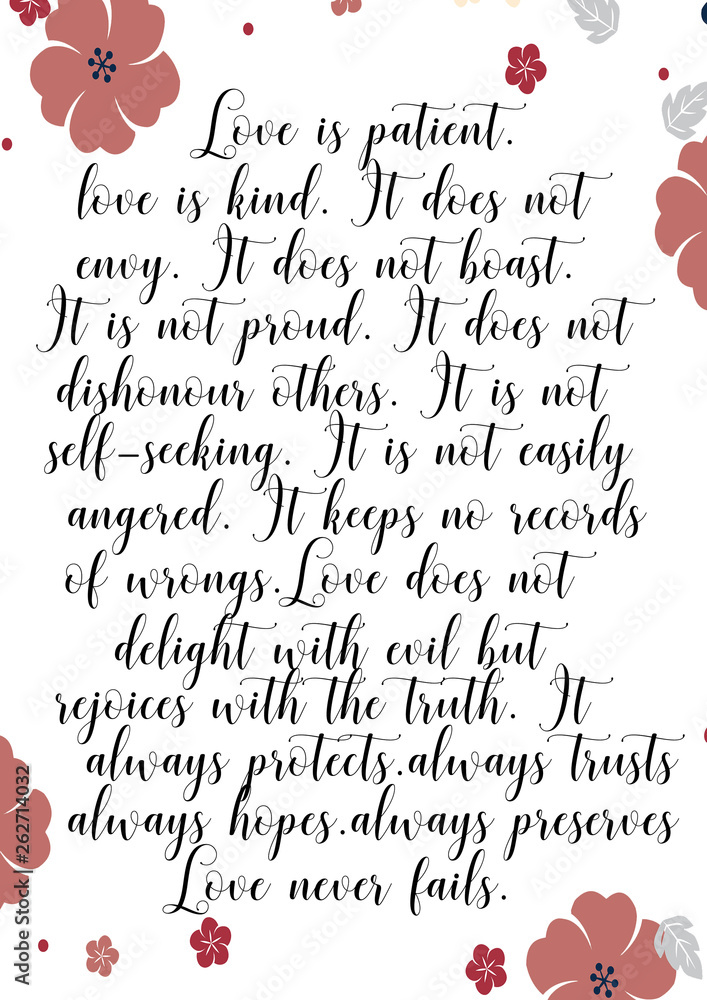 Love is patient.
love is kind. It does not
envy. It does not boast.
It is not proud. It does not
dishonour others. It is not
self-seeking. It is not easily
angered. It keeps no records
of wrongs.Love does not
delight with evil but
rejoices with the truth. It
always protects.always trusts
always hopes.always preserves
Love never fails.
Adobe Stock | #262714032